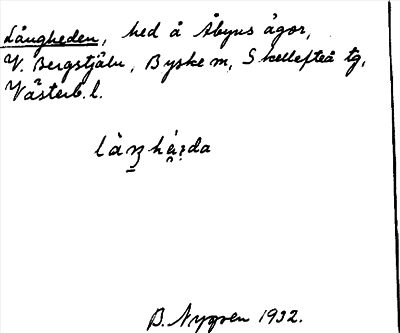 Långheden, hed å Åbyns ägor,
V. Bergstjäln, Byske m, Skellefteå tg,
Västerb. l.
B. Nygren 1932.